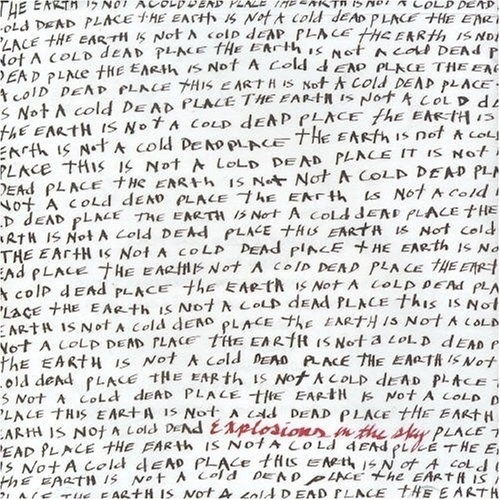 THE EARTH IS NOT A COLD DEAD PLACE THE EARTH IS NOT A COLD DEAD
OLD DEAD PLACE THE EARTH IS NOT A COLD DEAD PLACE THE EAR
LACE THE EARTH IS NOT A COLD DEAD PLACE THE EARTH IS NO
NOT A COLD DEAD PLACE THE EARTH IS NOT A COLD DEAD P
DEAD PLACE THE EARTH IS NOT A COLD DEAD PLACE THE EA
A COLD DEAD PLACE THIS EARTH IS NOT A COLD DEAD PLACE
S NOT A COLD DEAD PLACE THE EARTH IS NOT A COLD D
THE EARTH IS NOT A COLD DEAD PLACE THE EARTH IS
EARTH IS NOT A COLD DEAD PLACE THE EARTH IS NOT A COL
PLACE THIS IS NOT A COLD DEAD PLACE IT IS NOT
DEAD PLACE THE EARTH IS NOT NOT A COLD DEAD PL
NOT A COLD DEAD PLACE THE EARTH IS NOT A COLD
D DEAD PLACE THE EARTH IS NOT A COLD DEAD PLACE THE
RTH IS NOT A COLD DEAD PLACE THIS EARTH IS NOT COLD
THE EARTH IS NOT A COLD DEAD PLACE THE EARTH IS NO
EAD PLACE THE EARTH IS NOT A COLD DEAD PLACE THE EART
A COLD DEAD PLACE THE EARTH IS NOT A COLD DEAD PLA
LACE THE EARTH IS NOT A COLD DEAD PLACE THIS IS NOT
EARTH IS NOT A COLD DEAD PLACE THE EARTH IS NOT A COLD
NOT A COLD DEAD PLACE THE EARTH IS NOT A COLD DEAD P
THE EARTH IS NOT A COLD DEAD PLACE THE EARTH IS NOT
OLD DEAD PLACE THE EARTH IS NOT A COLD DEAD PLACE
S NOT A COLD DEAD PLACE THE EARTH IS NOT A COLD
PLACE THIS EARTH IS NOT A COLD DEAD PLACE THE EARTH
EARTH IS NOT A COLD DEAD Explosions in the sky PLACE T
DEAD PLACE THE EARTH IS NOT A COLD DEAD PLACE THE E
IS NOT A COLD DEAD PLACE THIS EARTH IS NOT A COLD
THE EARTH IS NOT A COLD DEAD PLACE THE EARTH IS
PLACE THE EARTH IS NOT A COLD DEAD PLACE THE EARTH